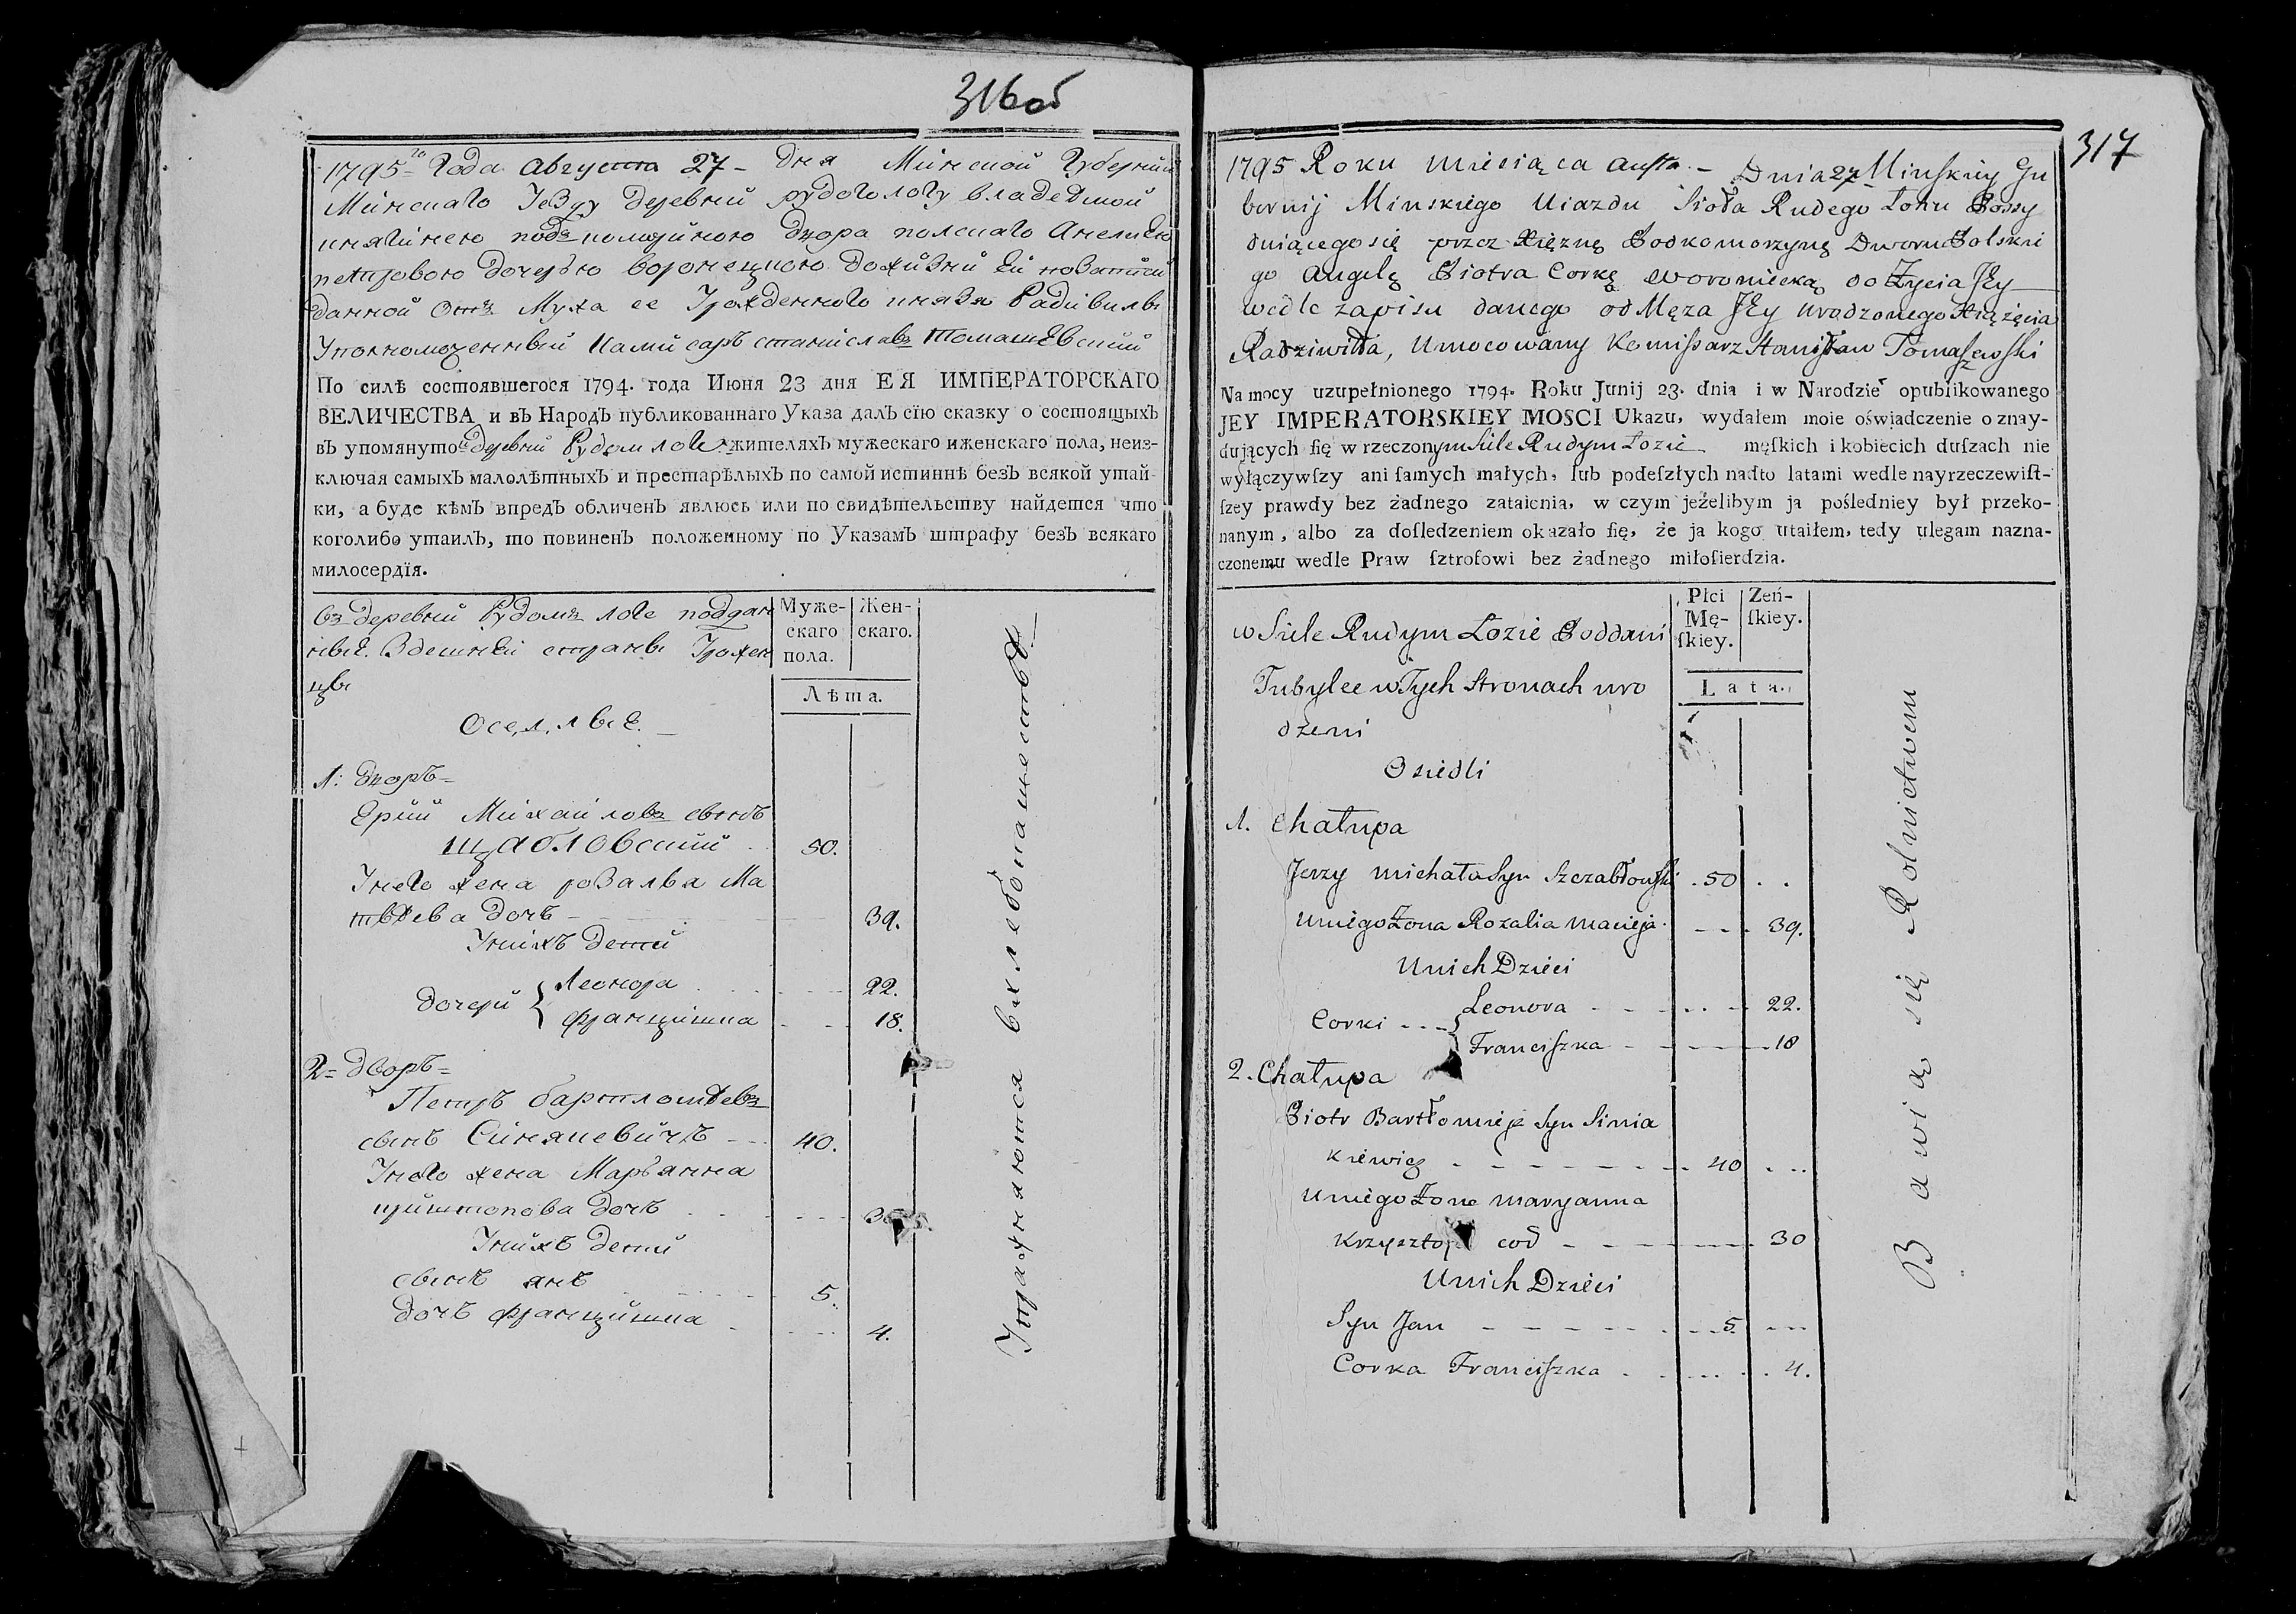 316об
1795го Года Августа 27 - Дня Минской Губернии
Минскаго Уезду Деревни рудогологу владеемой
княгинею подкомориною Двора полскаго Анелиею
петровою дочерью воронецкою доживни Ей
данной отъ Мужа ее Урожденного князя Радивила
Упономоченный Камисаръ станиславъ Томашевский
По силѣ состоявшегося 1794. года Июня 23 дня ЕЯ ИМПЕРАТОРСКАГО
ВЕЛИЧЕСТВА и въ НародЪ публикованнаго Указа далЪ сїю сказку о состоящыхЪ
въ упомянутой деревни Рудом логе жителяхЪ мужескаго иженскаго пола, неиз-
ключая самыхЪ малолѣтныхЪ и престарѣлыхЪ по самой истиннѣ безЪ всякой утай-
ки, а буде кѣмЪ впредЪ обличенЪ явлюсь или по свидѣтельству найдется что
коголибо утаилЪ, то повиненЪ положенному по УказамЪ штрафу безЪ всякаго
милосердїя.
Въ деревни Рудомъ логе поддан
ные Здешней страны Урожен
цы
Муже-
скаго
пола.
Жен-
скаго.
Лѣта.
Оселлые
1: Дворъ =
Ерий Михайловъ сынъ
щабловский 50.
Унего жена розалья Ма
твѣева дочь - 39.
Унихъ дети
дочери { Леонора 22.
францишка 18.
2 = дворъ =
Петръ бартломѣевъ
сынъ Синякевичъ 40.
Унего жена Марьянна
криштопова дочь
Унихъ дети
сынъ янъ 5.
дочь францишка 4.
Упражняются вхлебопашествѣ
317
1795 Roku miesiąca Augsta - Dnia 27 Minskiey Gu
bernij Minskiego Uiazdu Sioła Rudego Łohu Possy
duiącego się przez Xiężnę Podkomorzynę Dworu Polskie
go Angelę Piotra Corkę Woroniecką do Życia Jey
wedle zapisu danego od Męza Jey urodzonego Xiążęcia
Radziwiłła, Umocowany Komissarz Stanisław Tomaszewski
Na mocy uzupełnionego 1794. Roku Junij 23. dnia i w Narodzie opublikowanego
JEY IMPERATORSKIEY MOSCI Ukazu, wydałem moie oświadczenie o znay-
dujących ſię w rzeczonym Siele Rudym Łozie męſkich i kobiecich duſzach nie
wyłączywſzy ani ſamych małych, lub podeſzłych nadto latami wedle nayrzeczewiſt-
ſzey prawdy bez żadnego zataienia, w czym jeżelibym ja pośledniey był przeko-
nanym, albo za doſledzeniem okazało ſię, że ja kogo utaiłem, tedy ulegam nazna-
czonemu wedle Praw ſztrofowi bez żadnego miłoſierdzia.
w Siele Rudym Łozie Poddani
Tubylce w Tych Stronach uro
dzeni
Płci
Mę-
ſkiey.
Zeń-
ſkiey.
Lata.
Osiedli
1. Chałupa
Jerzy Michała Syn Szczabłowski 50
Uniego Żona Rozalia Macieja 39.
Unich Dzieci
Corki { Leonora 22.
Franciszka 18
2. Chałupa
Piotr Bartłomieja Syn Sinia
kiewicz 40
Uniego Żona Maryanna
Krzysztofa cod 30
Unich Dzieci
Syn Jan 5.
Corka Franciszka 4.
Bawią się Rolnictwem